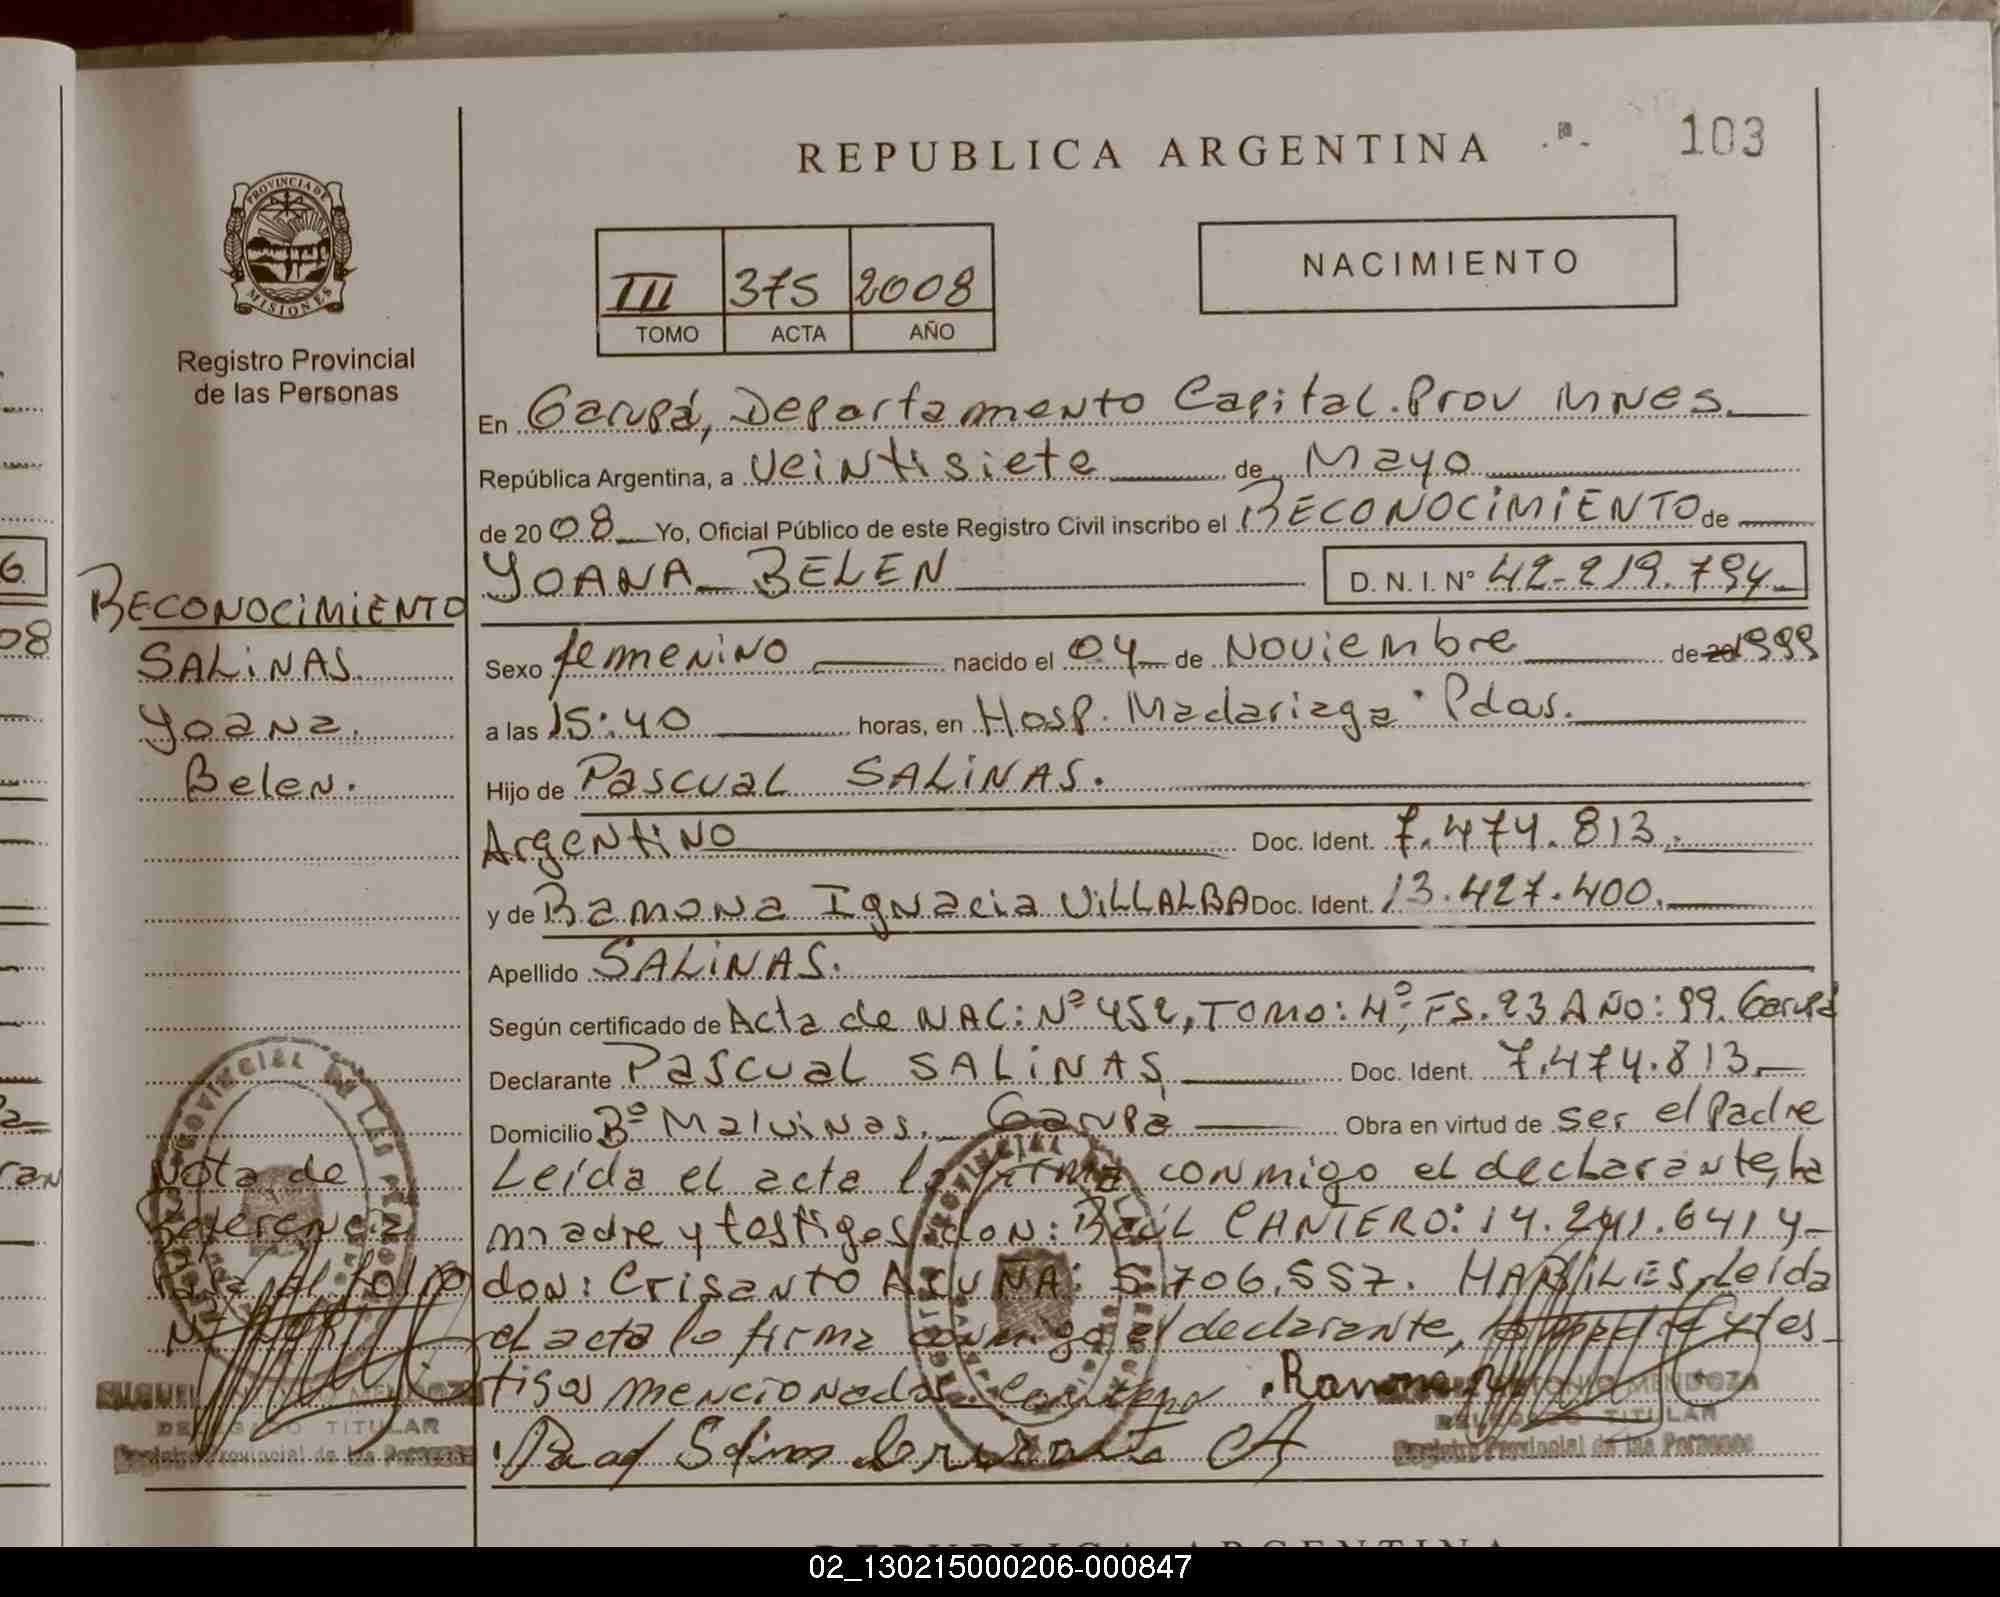 REPUBLICA ARGENTINA
103
PROVINCIA DE MISIONES
Registro Provincial
de las Personas
III 375 2008
TOMO ACTA AÑO
NACIMIENTO
En Garupá, Departamento Capital. Prov MNES.
República Argentina, a veintisiete de Mayo
de 2008 Yo, Oficial Público de este Registro Civil inscribo el RECONOCIMIENTO de
YOANA BELEN D. N. I. N° 42-219.794
RECONOCIMIENTO
SALINAS
Yoana.
Belen.
Sexo femenino nacido el 04 de Noviembre de 1999
a las 15:40 horas, en Hosp. Madariaga Pdas.
Hijo de Pascual SALINAS.
Argentino Doc. Ident. 7.474.813.
y de Ramona Ignacia VILLALBA Doc. Ident. 13.427.400.
Apellido SALINAS.
Según certificado de Acta de NAC: Nº 452, TOMO: 4º, FS. 23 AÑO: 99. Garupá
Declarante Pascual SALINAS Doc. Ident. 7.474.813.
Domicilio Bº Malvinas. Garupá Obra en virtud de ser el Padre
Leída el acta la firma conmigo el declarante, la
madre y testigos don: Raúl CANTERO: 14.241.641 y
don: Crisanto ACUÑA: 5.706.557. HABILES, Leída
el acta lo firma conmigo el declarante, y tes-
tigos mencionados.
Nota de
Referencia
Ramona
DELEGADO TITULAR
Registro Provincial de las Personas
MENDOZA
DELEGADO TITULAR
Registro Provincial de las Personas
REPUBLICA ARGENTINA
02_130215000206-000847